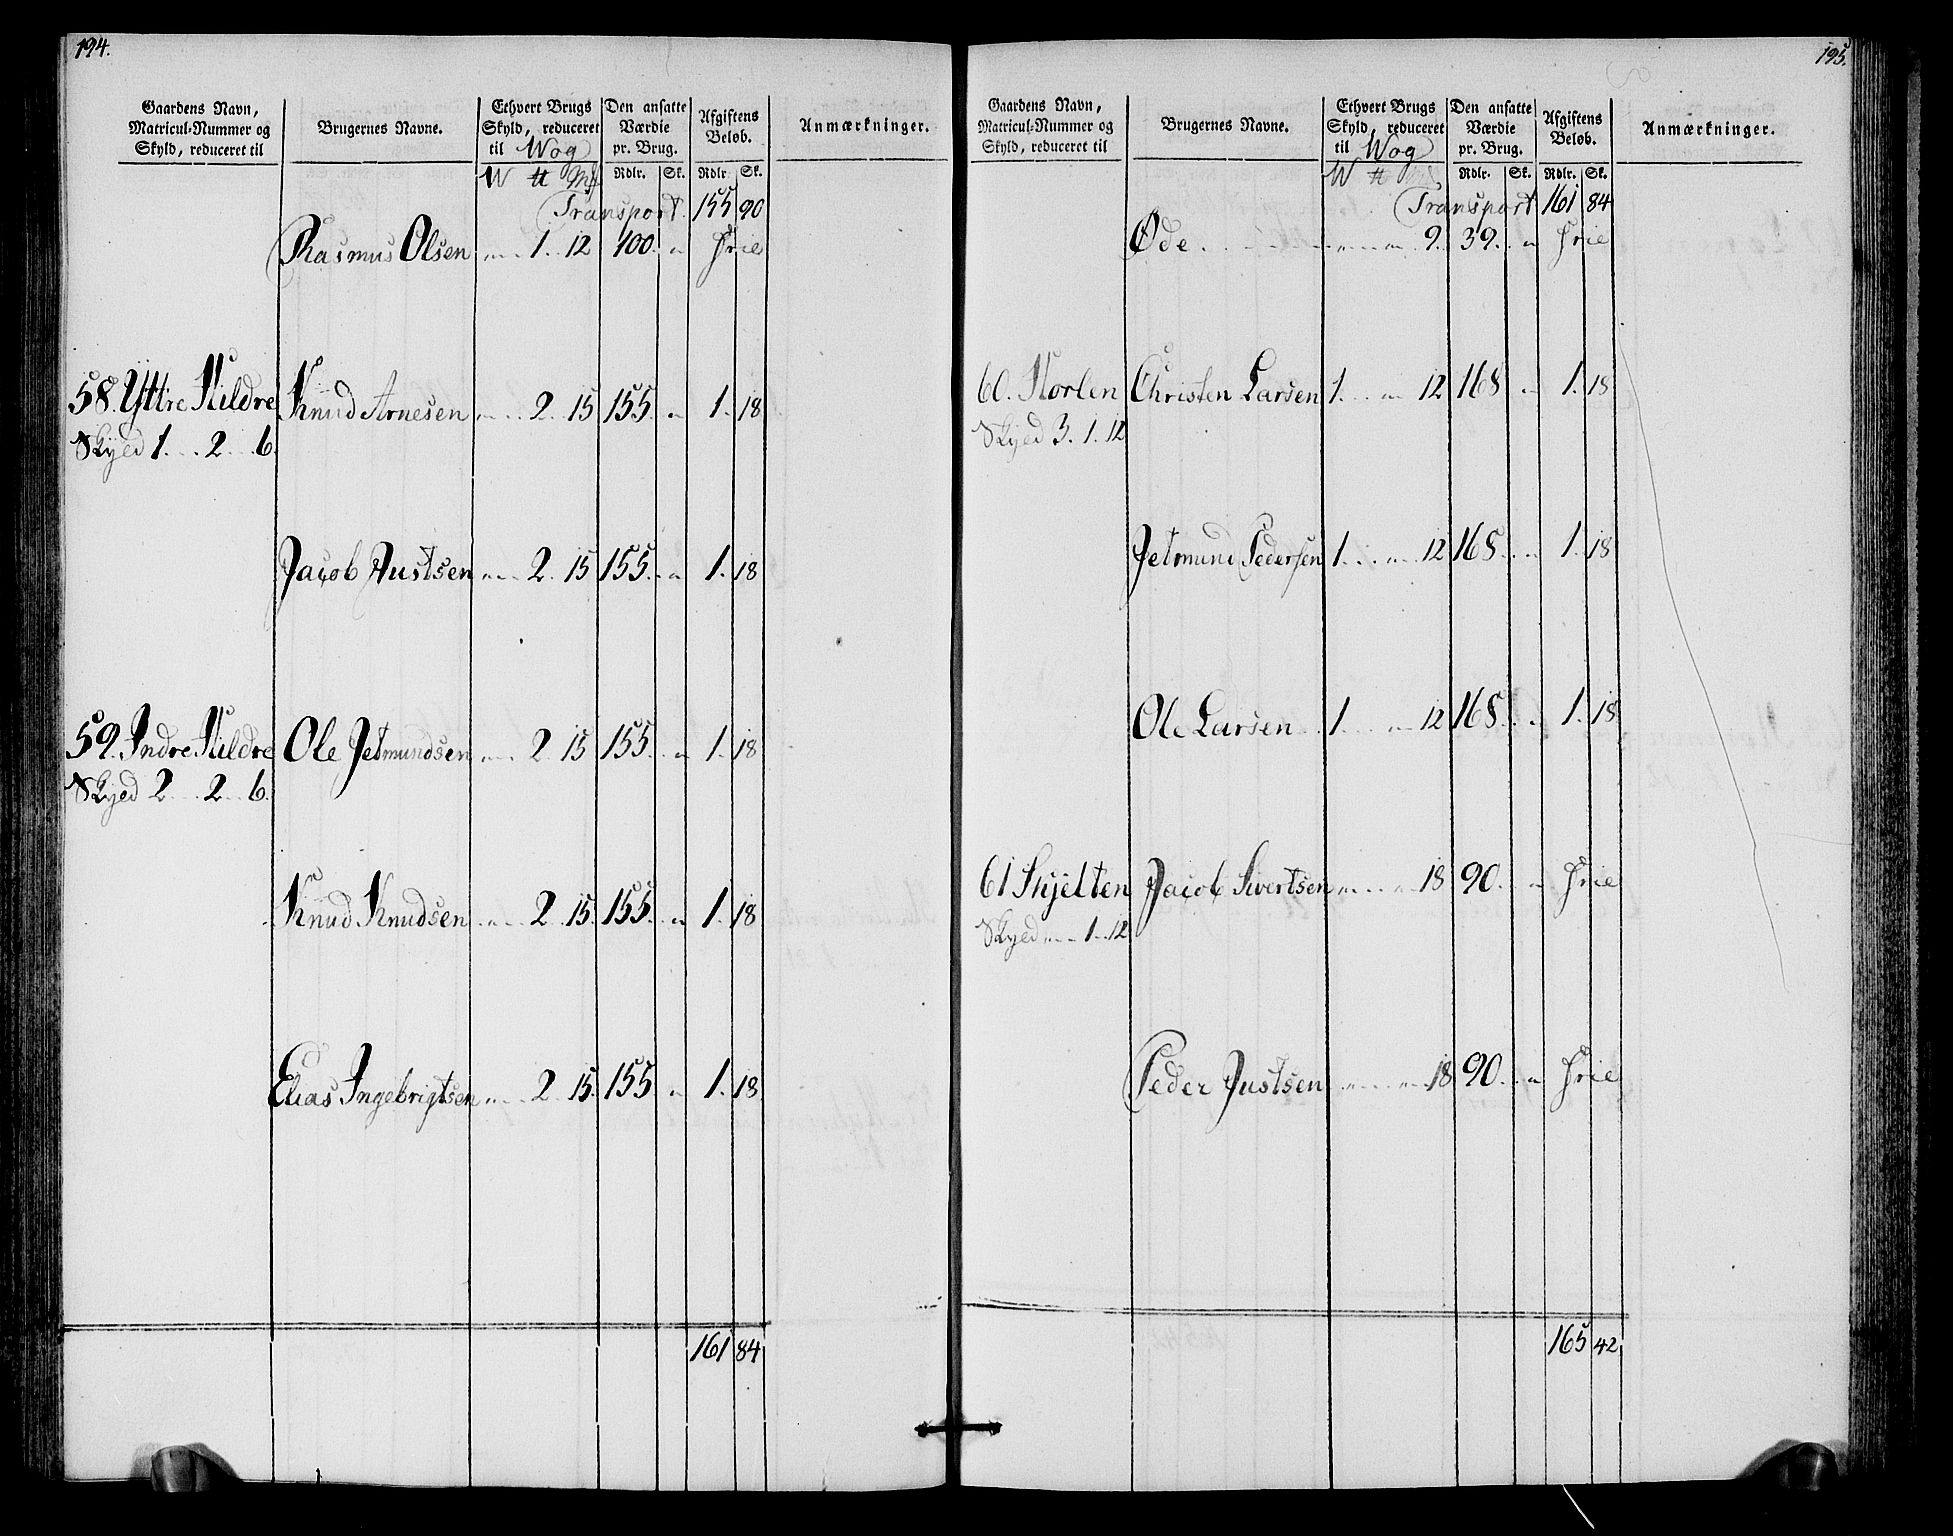 194.
Gaardens Navn, Matricul-Nummer og Skyld, reduceret til
Brugernes Navne.
Ethvert Brugs Skyld, reduceret til Wog
Den ansatte Værdie pr. Brug.
Afgiftens Beløb.
Anmærkninger.
W ℔ Mk Rdlr. Sk. Rdlr. Sk.
Transport. 155 90
Rasmus Olsen „ 1. 12 100. „ frie
58. Yttre Hildre Knud Arnesen „ 2 15 155. „ 1. 18
Skyld 1. 2 6.
Jacob Justsen „ 2. 15 155. „ 1. 18
59. Indre Hildre Ole Jetmundsen „ 2 15 155. „ 1. 18
Skyld 2 2 6.
Knud Knudsen „ 2 15. 155. „ 1. 18
Elias Ingebrigtsen „ 2 15. 155 „ 1. 18
161 84
195.
Gaardens Navn, Matricul-Nummer og Skyld, reduceret til
Brugernes Navne.
Ethvert Brugs Skyld, reduceret til Wog
Den ansatte Værdie pr. Brug.
Afgiftens Beløb.
Anmærkninger.
W ℔ Mk Rdlr. Sk. Rdlr. Sk.
Transport 161 84
Øde „ „ 9. 39. „ frie
60. Horlen Christen Larsen 1. „ 12 168 „ 1. 18
Skyld 3. 1. 12
Jetmund Pedersen 1. „ 12 168. „ 1. 18
Ole Larsen 1. „ 12 168. „ 1. 18
61 Skjelten Jacob Sivertsen „ „ 18 90. „ frie
Skyld „ 1. 12
Peder Justsen „ „ 18 90. „ frie
165 42